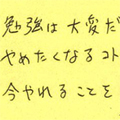 勉強は大変だ
やめたくなるコト
今やれることを